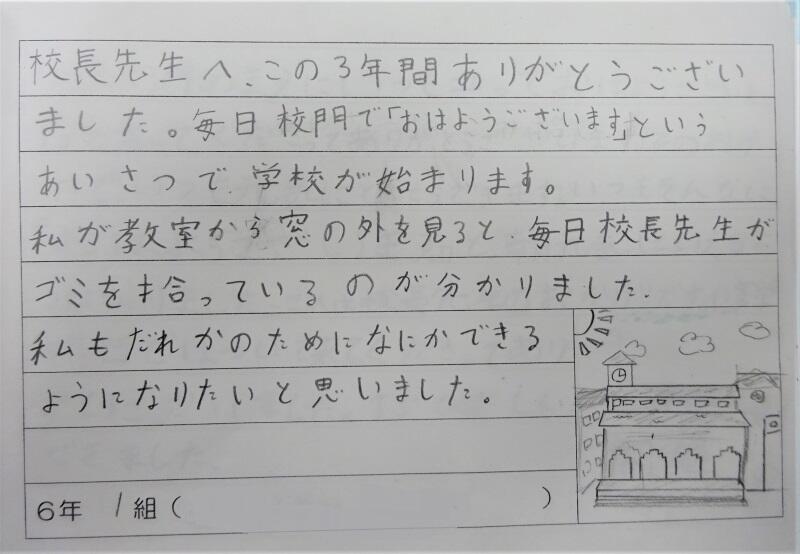 校長先生へ、この3年間ありがとうござい
ました。毎日校門で「おはようございます」という
あいさつで、学校が始まります。
私が教室から窓の外を見ると、毎日校長先生が
ゴミを拾っているのが分かりました。
私もだれかのためになにかできる
ようになりたいと思いました。
6年 1組( )